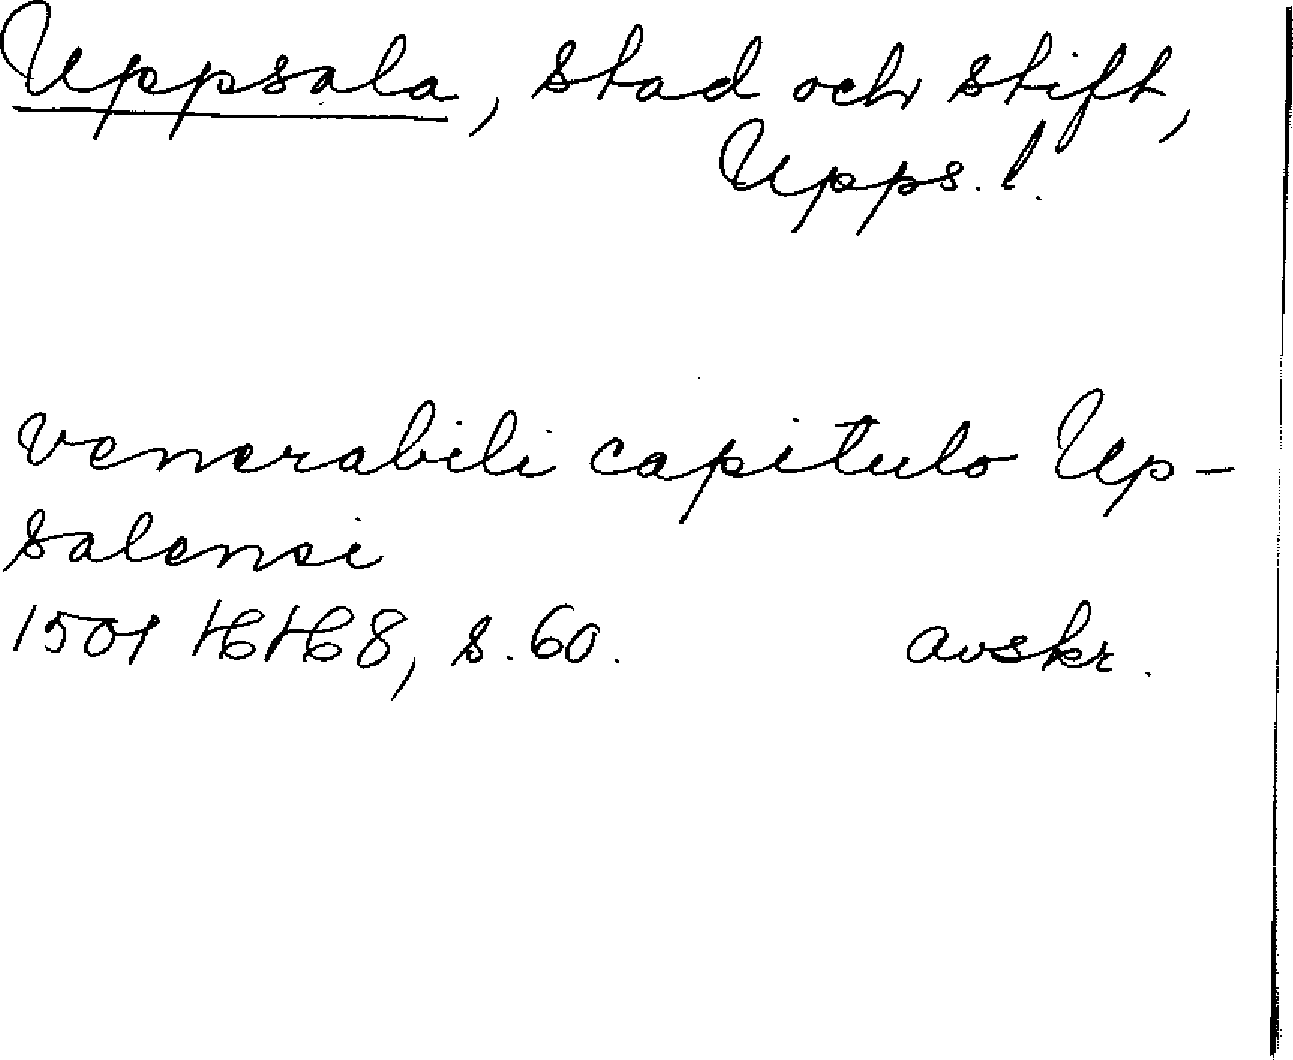 Uppsala, stad och stift,
Upps. l.
venerabili capitulo Up-
salensi
1501 HH 8, s. 60. avskr.